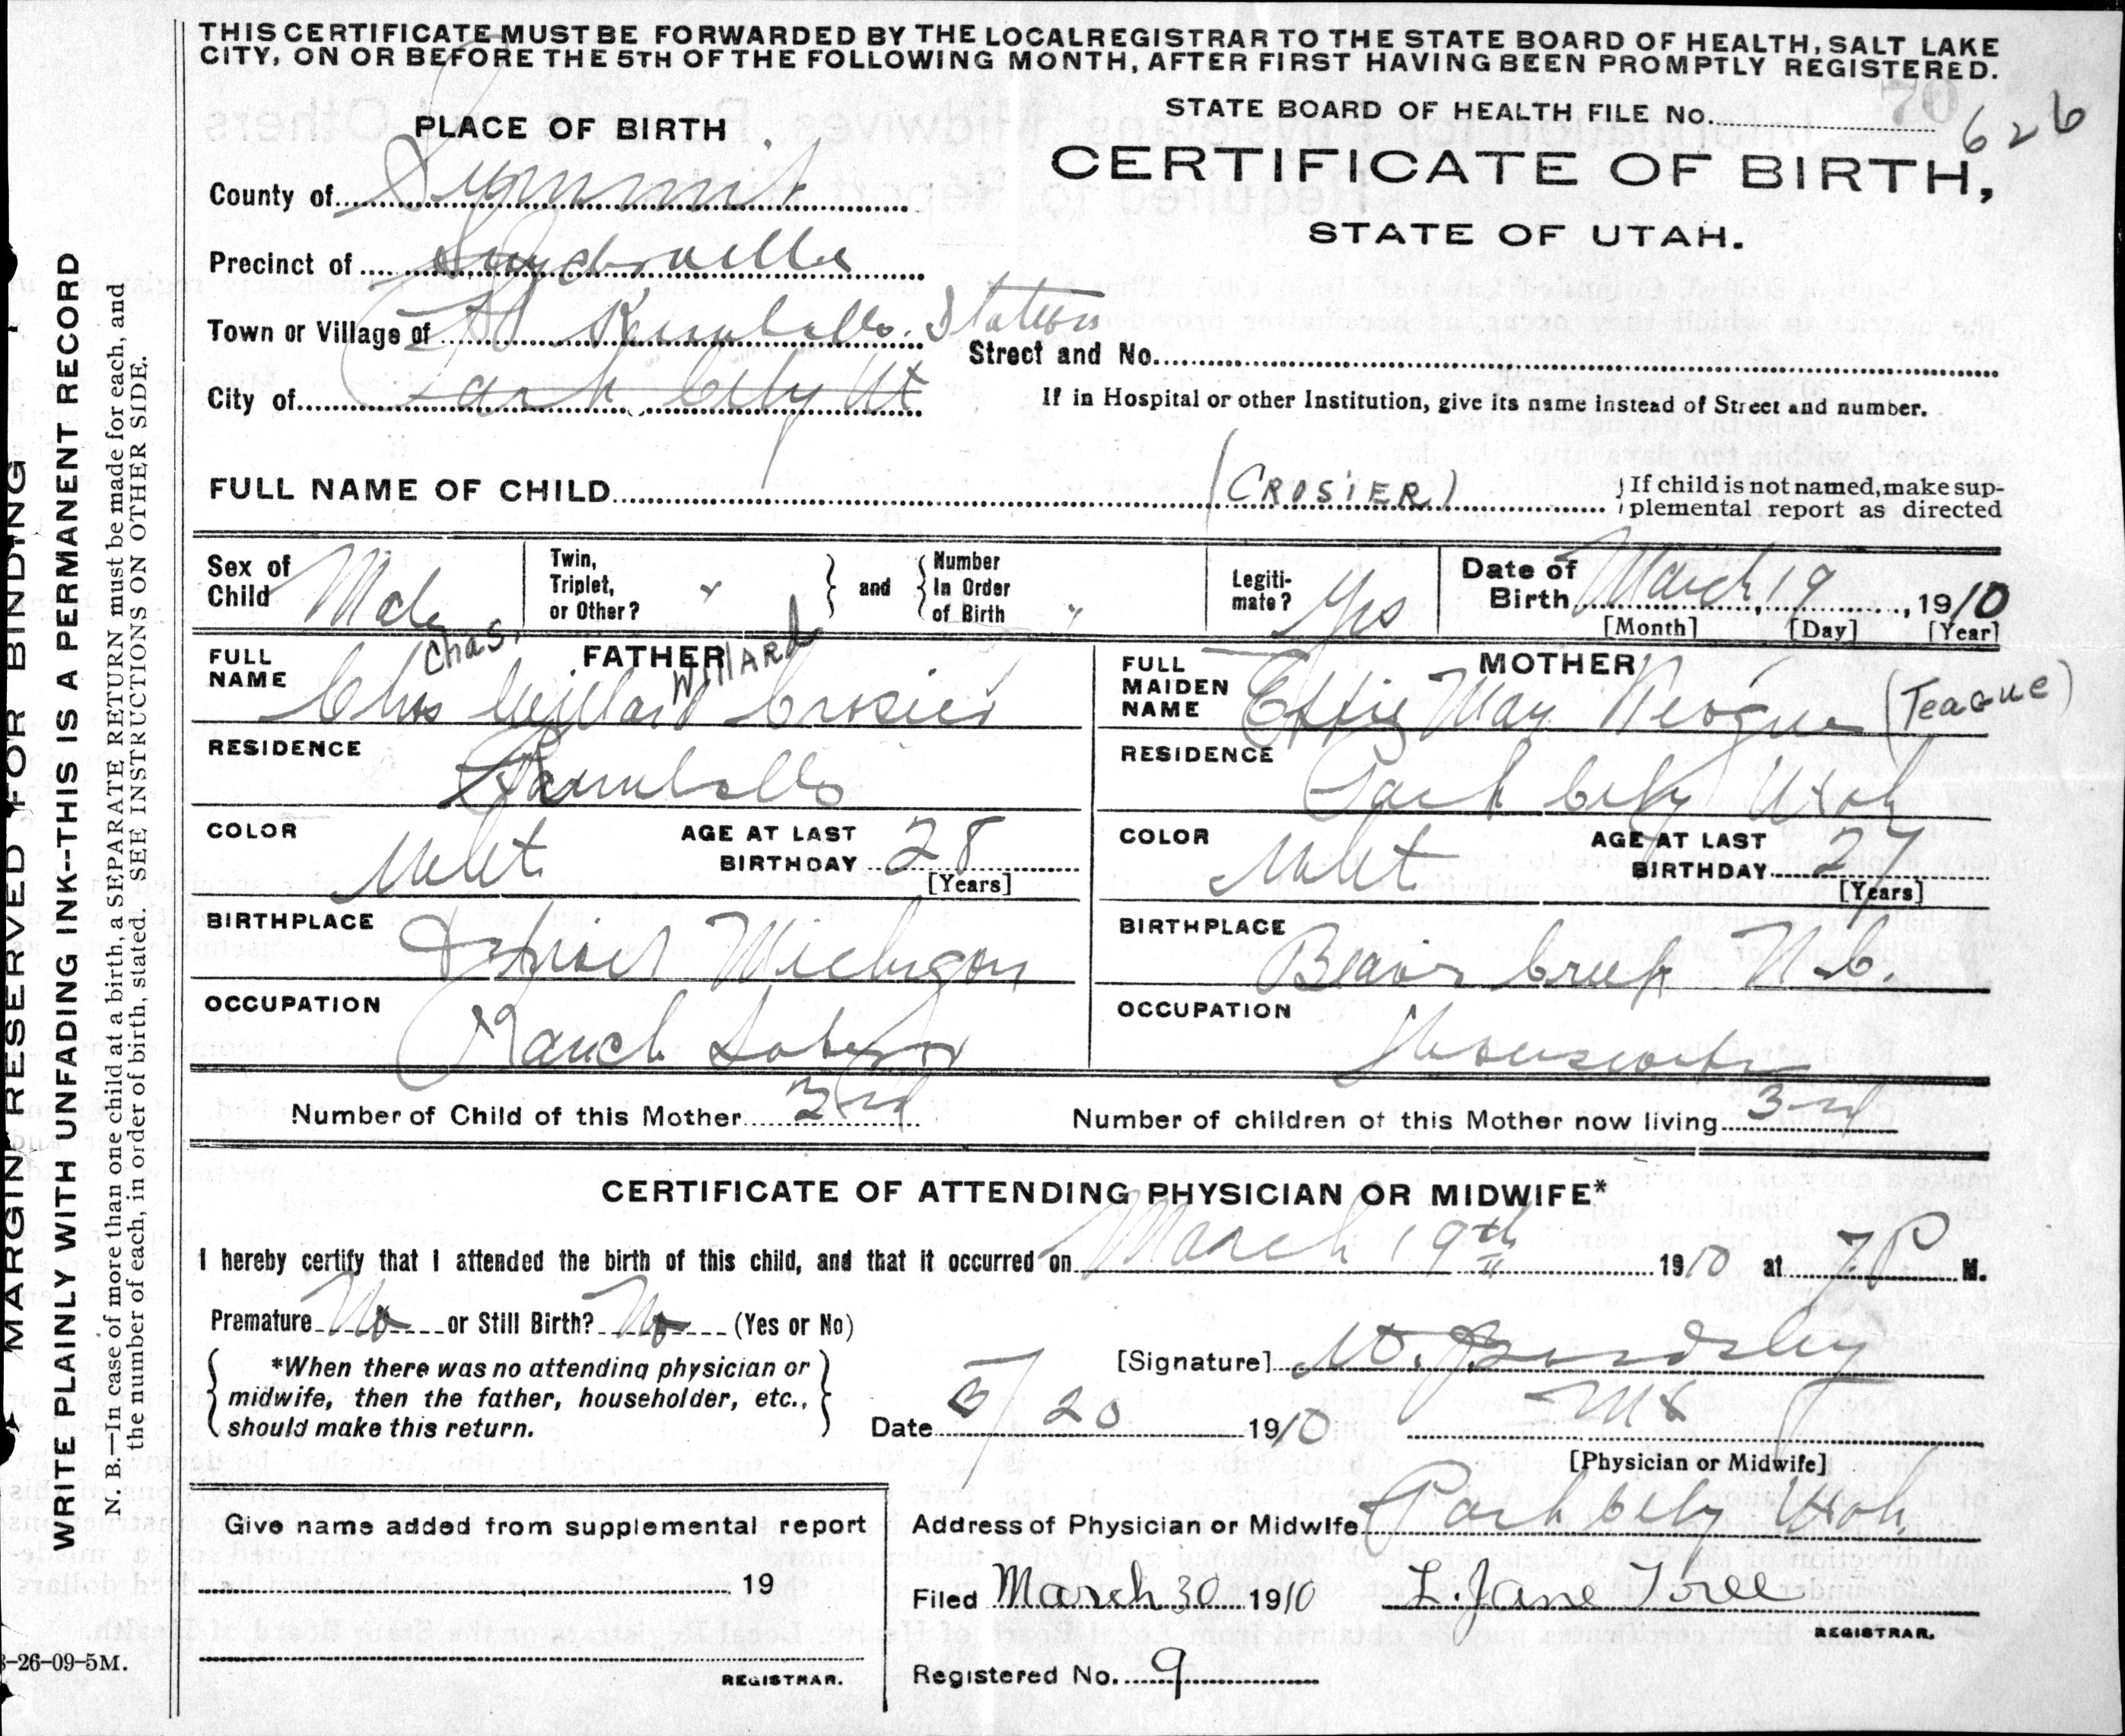 THIS CERTIFICATE MUST BE FORWARDED BY THE LOCAL REGISTRAR TO THE STATE BOARD OF HEALTH, SALT LAKE
CITY, ON OR BEFORE THE 5TH OF THE FOLLOWING MONTH, AFTER FIRST HAVING BEEN PROMPTLY REGISTERED.
STATE BOARD OF HEALTH FILE No. 70 626
PLACE OF BIRTH
CERTIFICATE OF BIRTH,
STATE OF UTAH.
County of Summit
Precinct of Snyderville
Town or Village of Kimballs Station
Street and No.
City of Park City Ut
If in Hospital or other Institution, give its name instead of Street and number.
FULL NAME OF CHILD (CROSIER) } If child is not named, make sup-
plemental report as directed
Sex of Child Male
Twin, Triplet, or Other? " } and { Number in Order of Birth "
Legiti-mate? Yes
Date of Birth March, 19, 1910
[Month] [Day] [Year]
FATHER
FULL NAME Chas Willard Crosier
Chas. WillARd
RESIDENCE Kimballs
COLOR Whit
AGE AT LAST BIRTHDAY 28
[Years]
BIRTHPLACE Detroit Michigan
OCCUPATION Ranch Laborer
MOTHER
FULL MAIDEN NAME Effie May (Teague)
RESIDENCE Park City Utah
COLOR Whit
AGE AT LAST BIRTHDAY 27
[Years]
BIRTHPLACE Beaver Creek N.C.
OCCUPATION Housework
Number of Child of this Mother 3rd
Number of children of this Mother now living 3
CERTIFICATE OF ATTENDING PHYSICIAN OR MIDWIFE*
I hereby certify that I attended the birth of this child, and that it occurred on March 19th 1910 at 7 P M.
Premature No or Still Birth? No (Yes or No)
*When there was no attending physician or
midwife, then the father, householder, etc.,
should make this return.
[Signature]
Date 3/20 1910
[Physician or Midwife]
Give name added from supplemental report
19
REGISTRAR.
Address of Physician or Midwife Park City Utah
Filed March 30 1910 L. Jane
REGISTRAR.
Registered No. 9
-26-09-5M.
MARGIN RESERVED FOR BINDING
WRITE PLAINLY WITH UNFADING INK--THIS IS A PERMANENT RECORD
N. B.—In case of more than one child at a birth, a SEPARATE RETURN must be made for each, and
the number of each, in order of birth, stated. SEE INSTRUCTIONS ON OTHER SIDE.